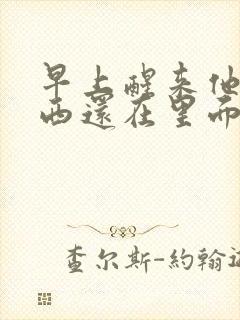 早上醒来他
西還在里而
查尔斯-約翰遜